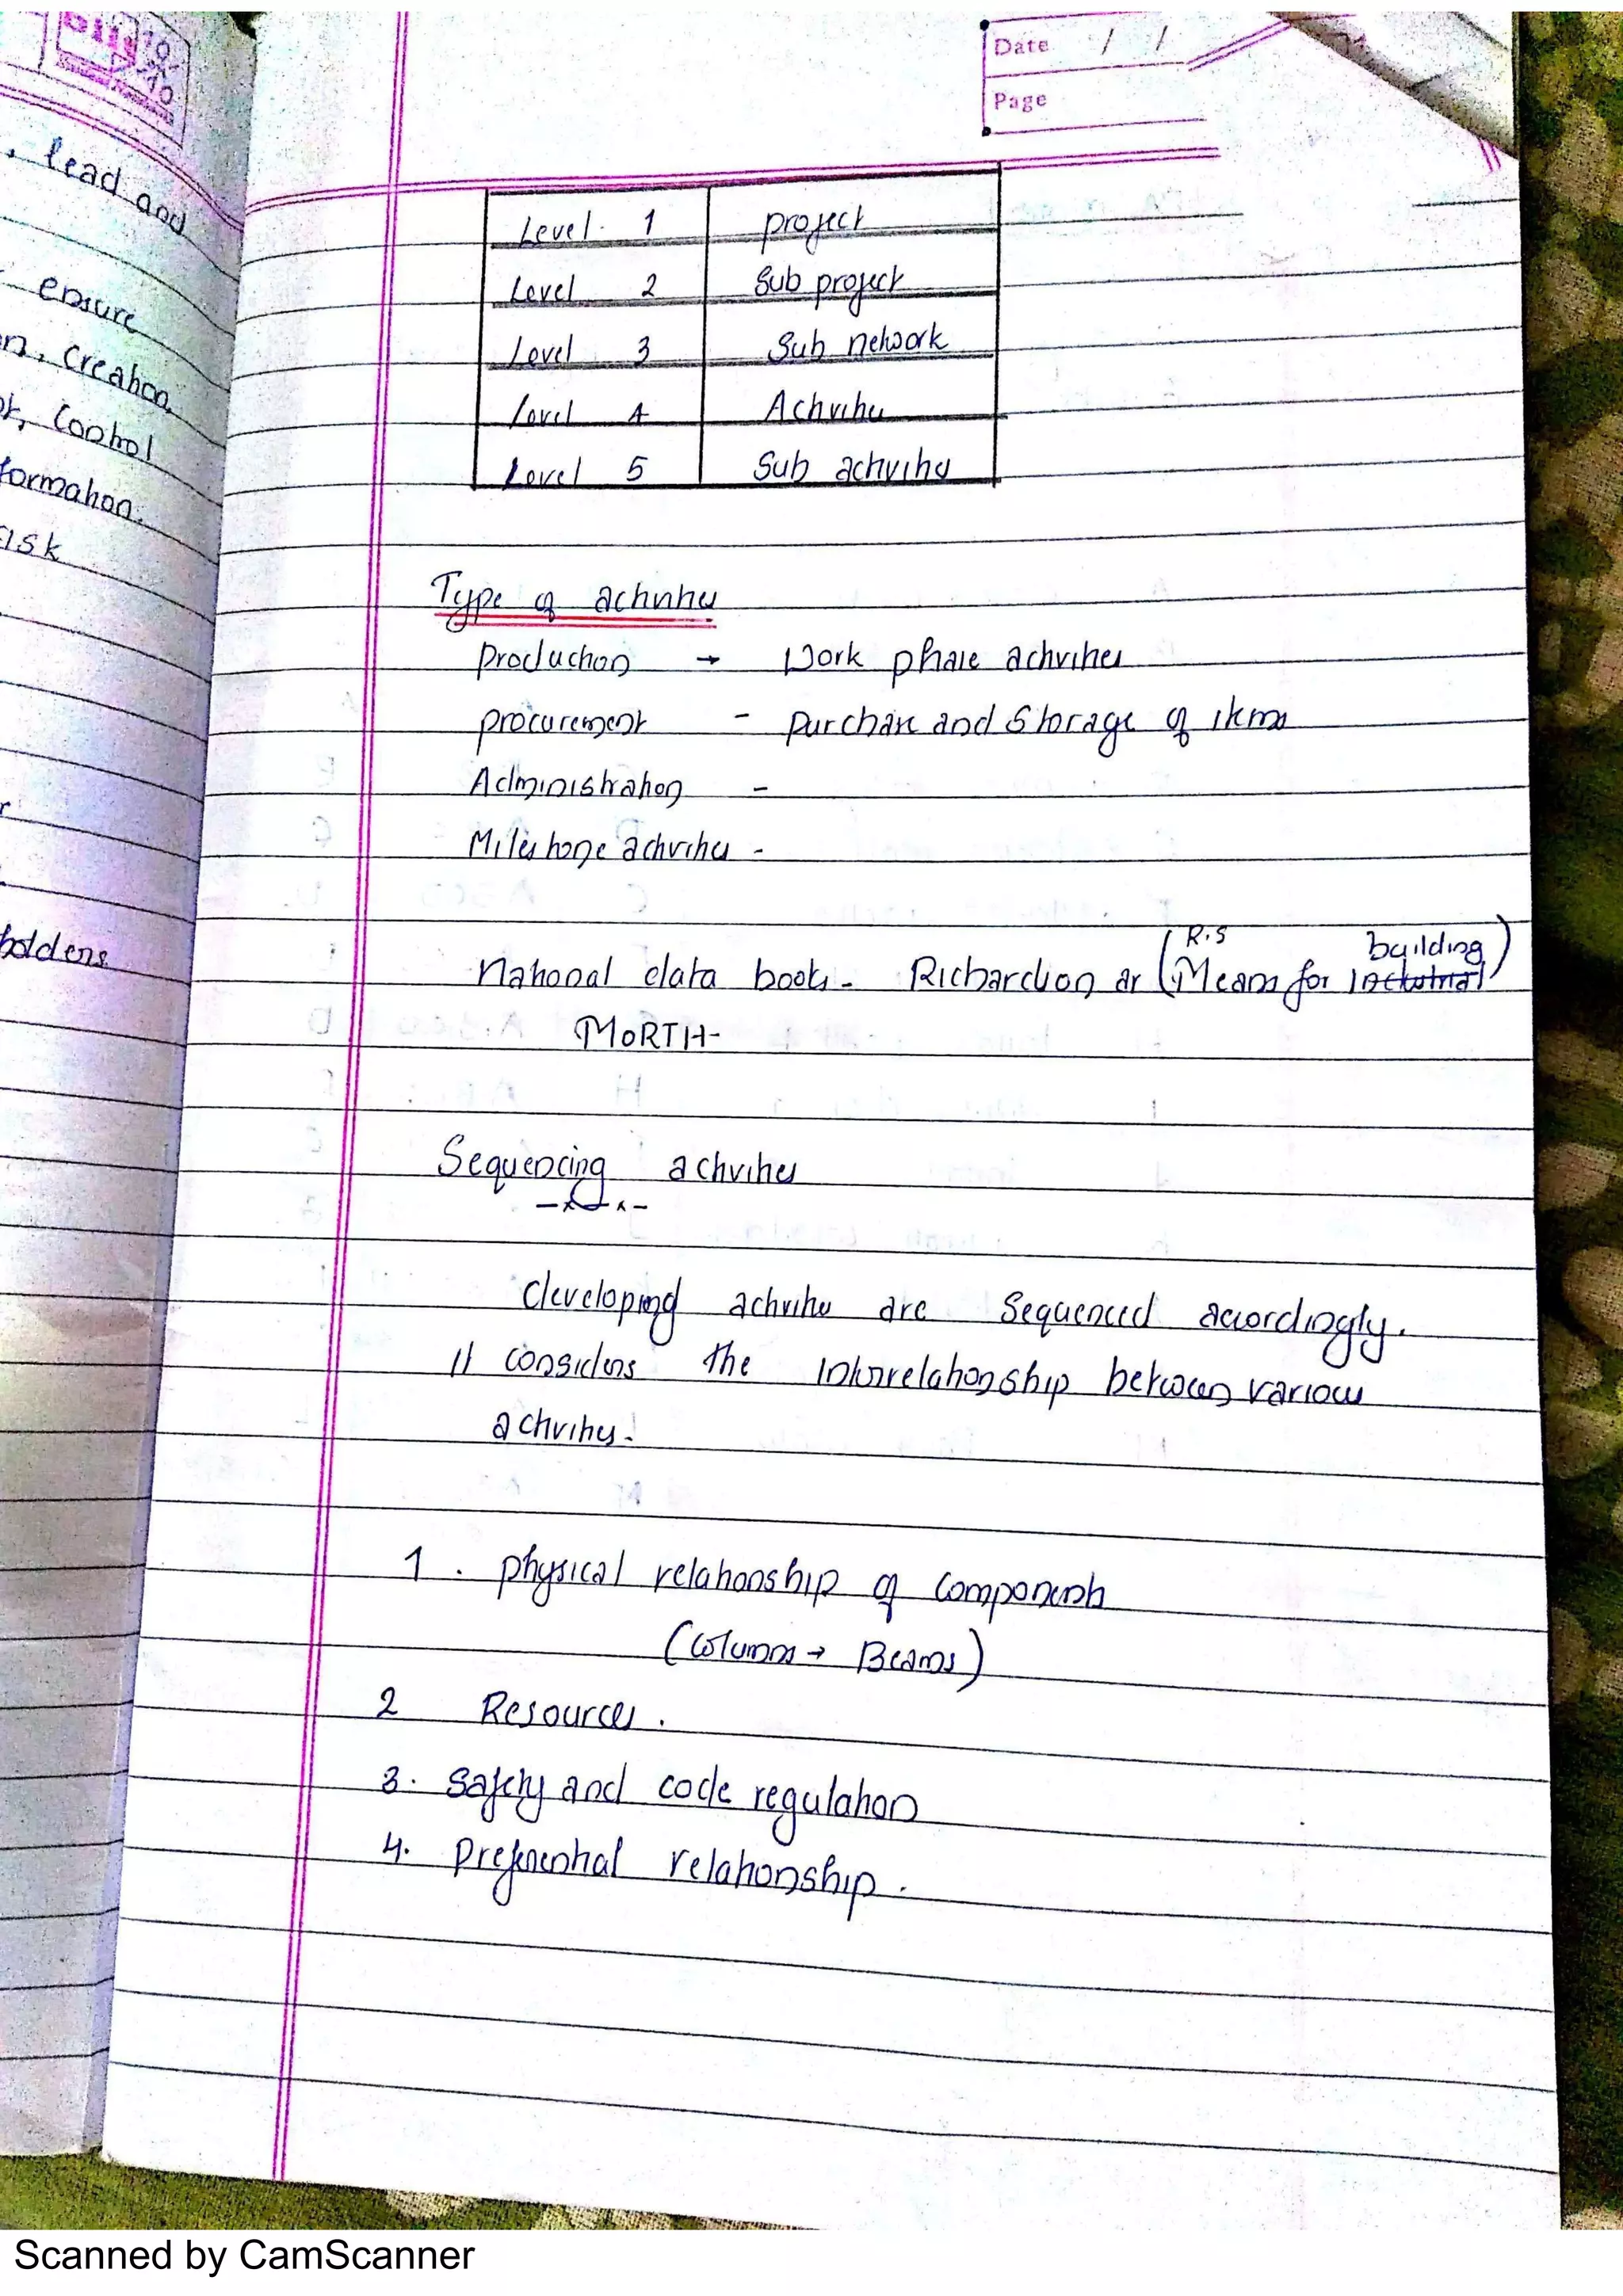 , lead and
ensure
n, Creation,
t, Control
formation.
risk
holders
Date / /
Page
Level 1 project
Level 2 Sub project
Level 3 Sub network
Level 4 Activities
Level 5 Sub activities
Type of activities
Production → Work phase activities
procurement - purchase and storage of items
Administration -
Milestone activities -
National data book - Richardson or (R.S Means for building)
MORTH-
Sequencing activities
developing activities are sequenced accordingly.
It considers the interrelationship between various
activities.
1. physical relationship of components
(Columns → Beams)
2 Resources.
3. Safety and code regulation
4. Preferential relationship.
Scanned by CamScanner